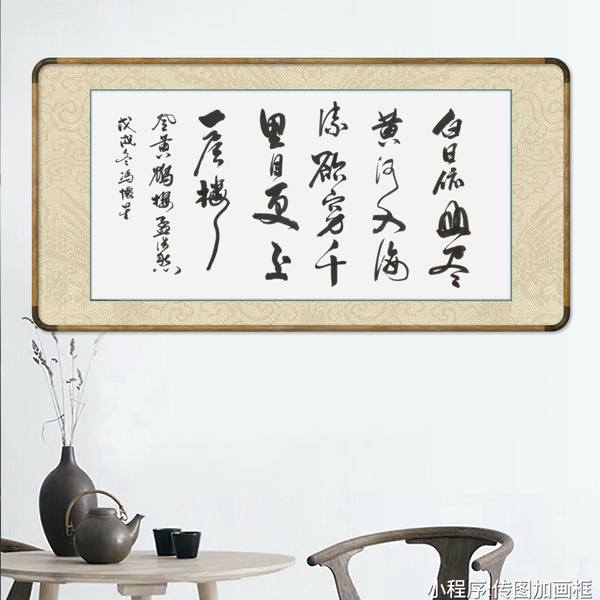 白日依山尽
黄河入海
流欲穷千
里目更上
一层楼
登黄鹤楼孟浩然
戊戌冬冯怀星
小程序:传图加画框